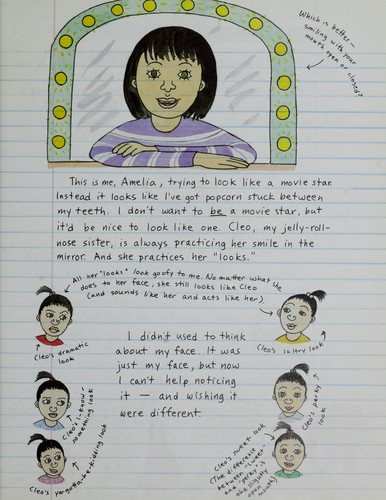 Which is better—
smiling with your
mouth open
or closed?
This is me, Amelia, trying to look like a movie star.
Instead it looks like I've got popcorn stuck between
my teeth. I don't want to be a movie star, but
it'd be nice to look like one. Cleo, my jelly-roll-
nose sister, is always practicing her smile in the
mirror. And she practices her "looks."
All her "looks" look goofy to me. No matter what she
does to her face, she still looks like Cleo
(and sounds like her and acts like her).
Cleo's dramatic
look
Cleo's sultry look
I didn't used to think
about my face. It was
just my face, but now
I can't help noticing
it — and wishing it
were different.
Cleo's I-know-
something look
Cleo's perky
look
Cleo's you-gotta-be-kidding look
Cleo's sweet look
(The difference
between "sweet"
and "perky" is
the slightly
open
mouth)